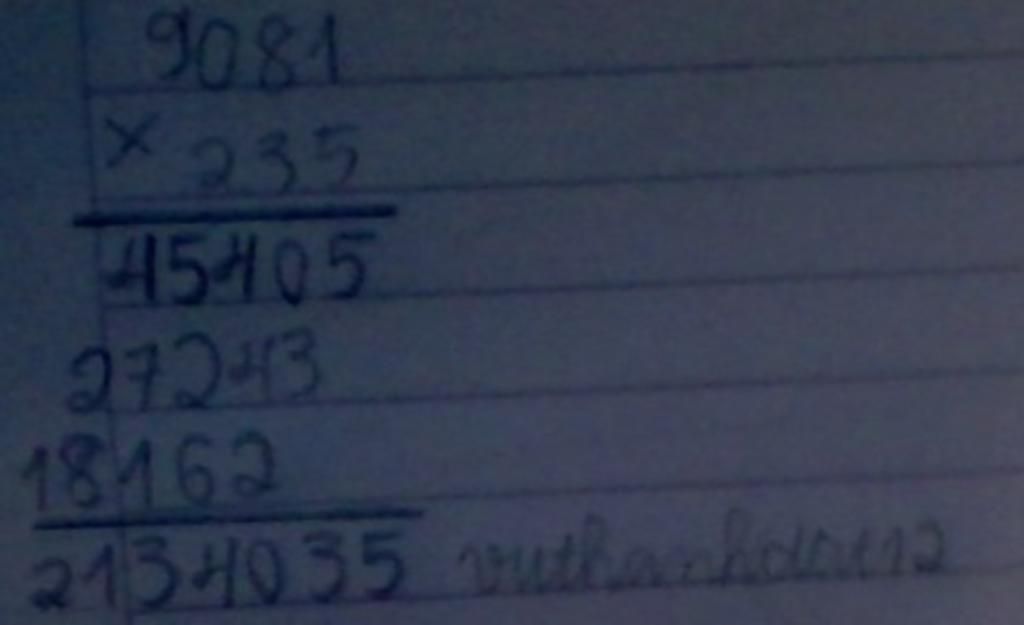 9081
× 235
45405
27243
18162
2134035